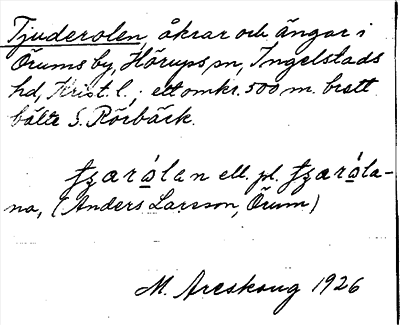 Tjuderolen, åkrar och ängar i
Örums by, Hörups sn, Ingelstads
hd, Krist. l., ett omkr. 500 m. brett
bälte S. Rörbäck.
ɟʒarålan ell. pl. ɟʒaråla-
na, (Anders Larsson, Örum)
M. Areskoug 1926